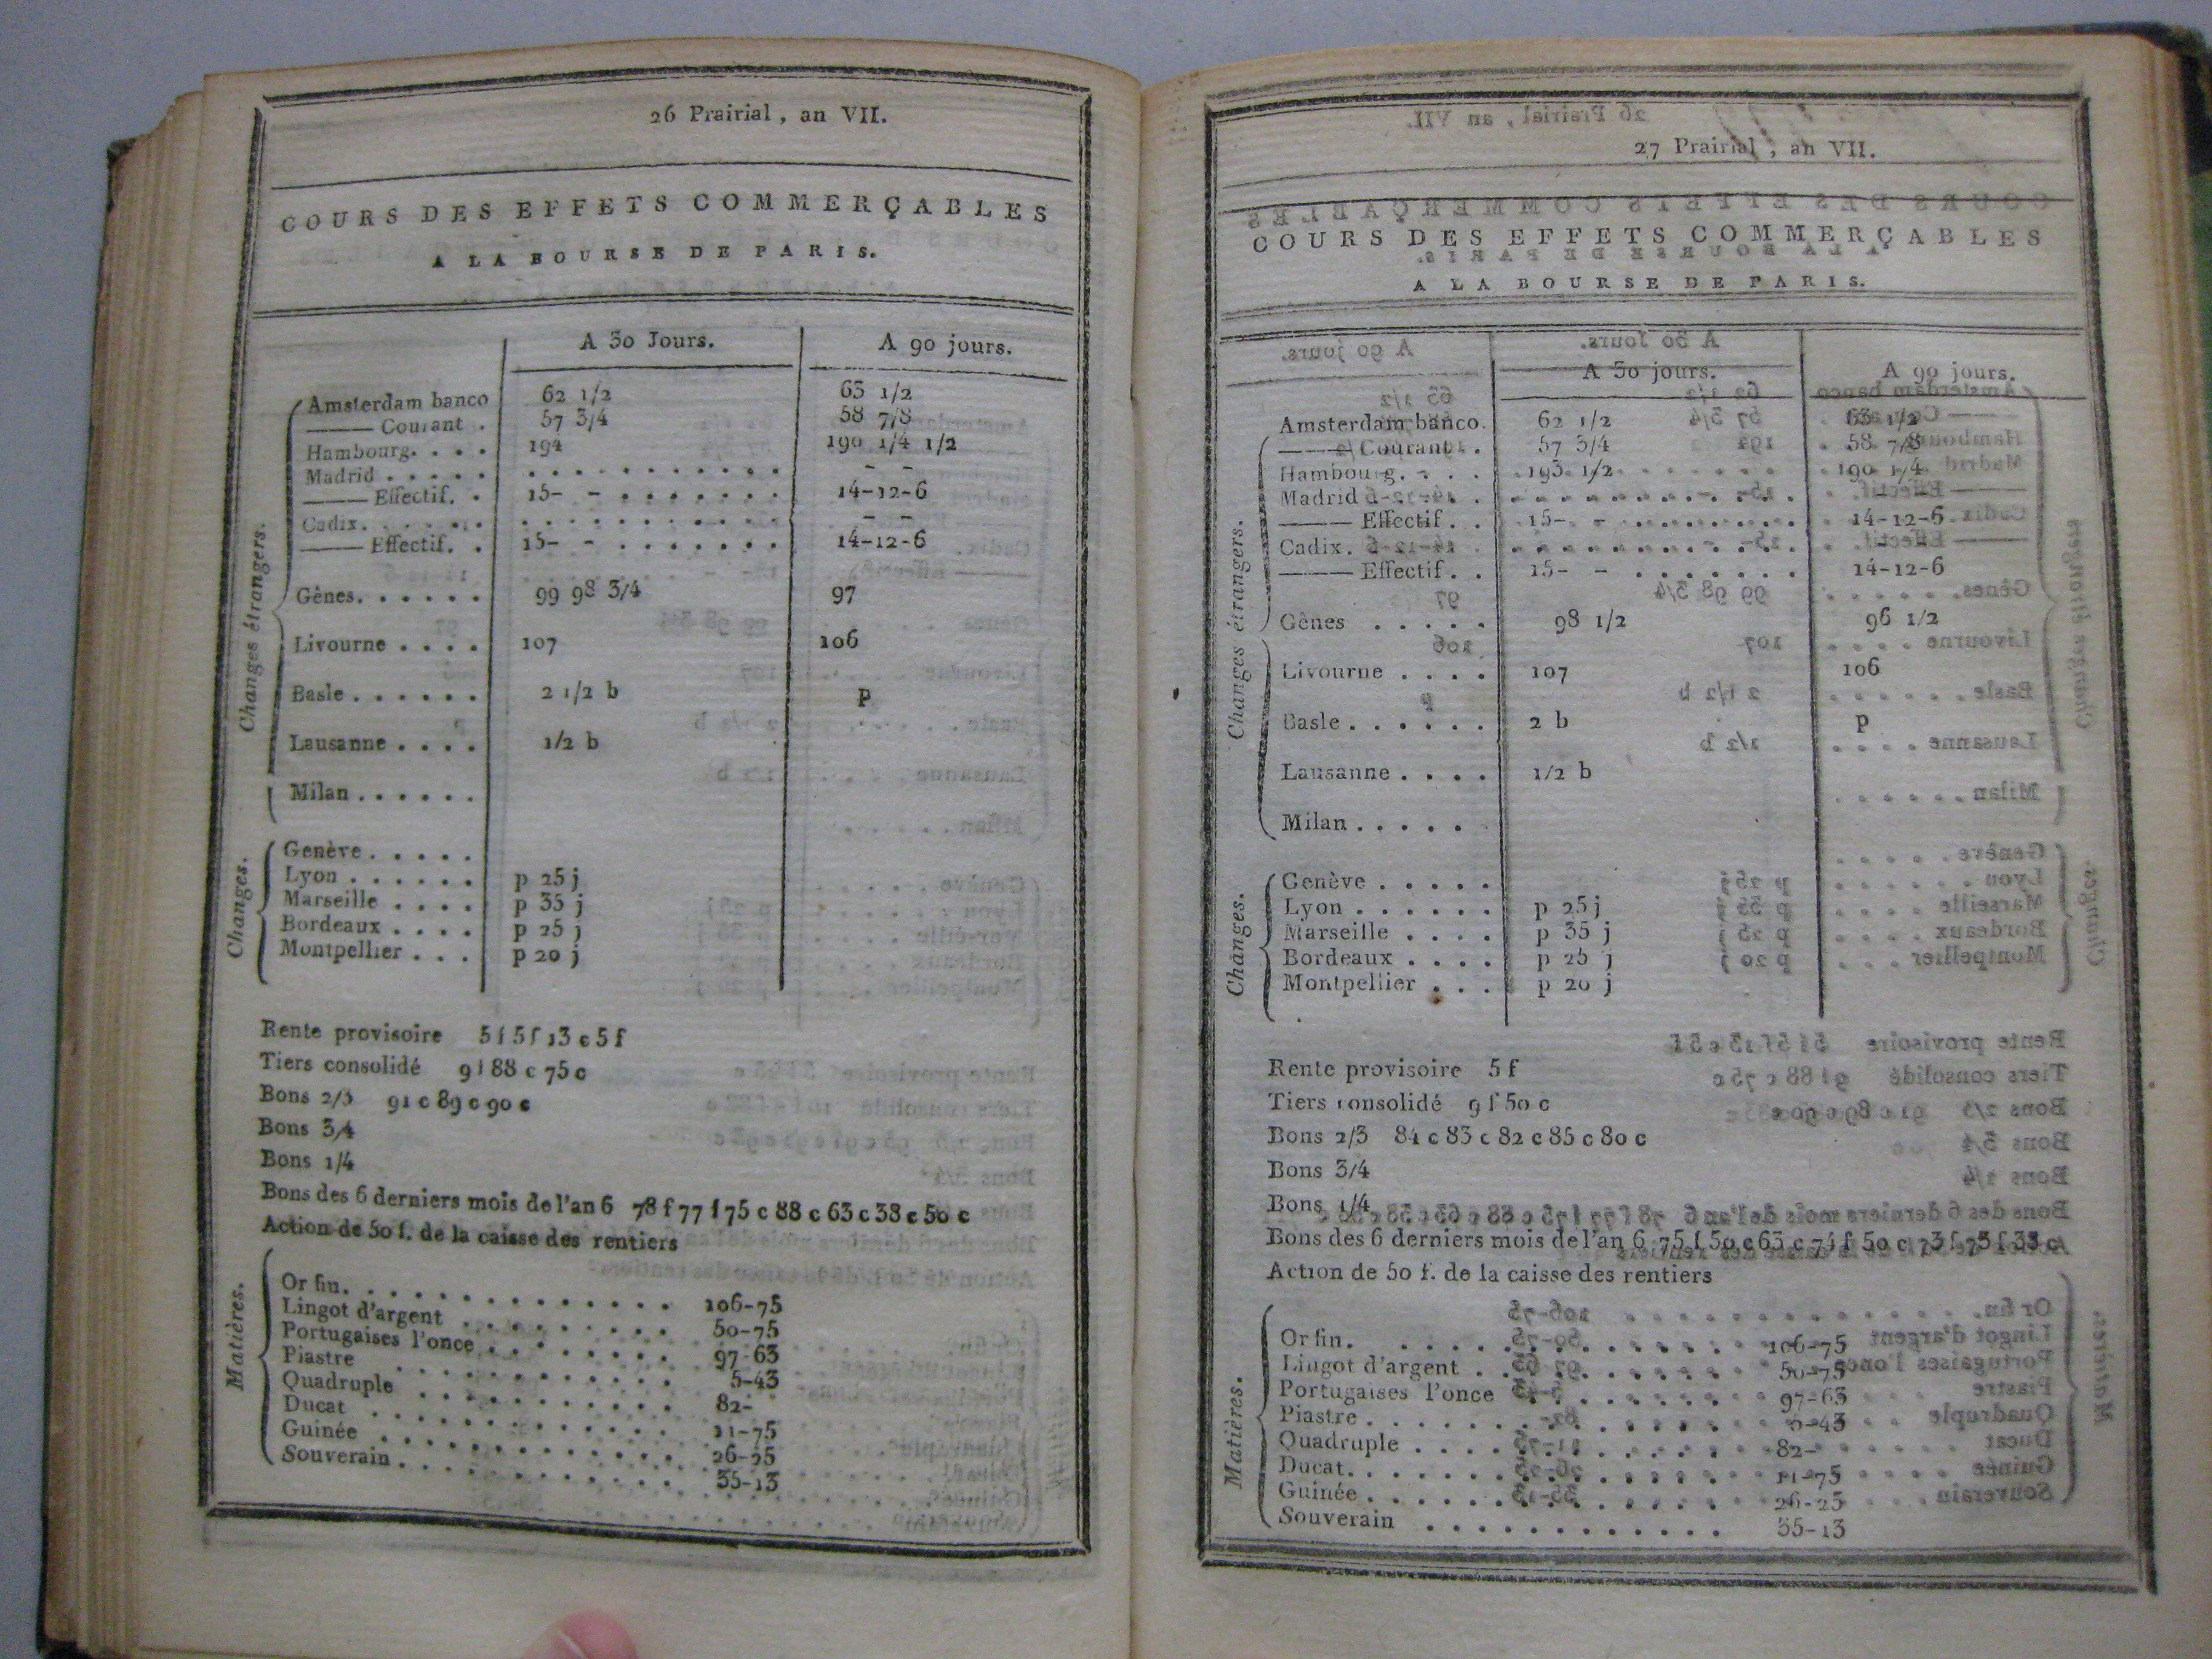 26 Prairial, an VII.
COURS DES EFFETS COMMERÇABLES
A LA BOURSE DE PARIS.
A 30 Jours. A 90 jours.
Changes étrangers.
Amsterdam banco 62 1/2 63 1/2
——— Courant . 57 3/4 58 7/8
Hambourg. . . . 194 190 1/4 1/2
Madrid . . . . . . . . . . . . . . . . - -
——— Effectif. . 15- - . . . . . . . 14-12-6
Cadix. . . . . . . . . . . . . . . . . - -
——— Effectif. . 15- - . . . . . . . 14-12-6
Gênes. . . . . . 99 98 3/4 97
Livourne . . . . 107 106
Basle . . . . . . 2 1/2 b p
Lausanne . . . . 1/2 b
Milan . . . . . .
Changes.
Genève . . . . .
Lyon . . . . . . p 25 j
Marseille . . . . p 35 j
Bordeaux . . . . p 25 j
Montpellier . . . p 20 j
Rente provisoire 5 f 5 f 13 c 5 f
Tiers consolidé 9 f 88 c 75 c
Bons 2/3 91 c 89 c 90 c
Bons 3/4
Bons 1/4
Bons des 6 derniers mois de l'an 6 78 f 77 f 75 c 88 c 63 c 38 c 50 c
Action de 50 f. de la caisse des rentiers
Matières.
Or fin. . . . . . . . . . . . . . 106-75
Lingot d'argent . . . . . . . . . 50-75
Portugaises l'once . . . . . . . . 97-63
Piastre . . . . . . . . . . . . 5-43
Quadruple . . . . . . . . . . . 82-
Ducat . . . . . . . . . . . . . 11-75
Guinée . . . . . . . . . . . . . 26-25
Souverain . . . . . . . . . . . . 35-13
27 Prairial, an VII.
COURS DES EFFETS COMMERÇABLES
A LA BOURSE DE PARIS.
A 30 jours. A 90 jours.
Changes étrangers.
Amsterdam banco. 62 1/2 63 1/2
——— Courant . . 57 3/4 58 7/8
Hambourg. . . . 193 1/2 190 1/4
Madrid . . . . . . . . . . . . . . .
——— Effectif . . 15- - . . . . . . . . 14-12-6
Cadix. . . . . . . . . . . . . . . .
——— Effectif . . 15- - . . . . . . . 14-12-6
Gênes . . . . . 98 1/2 96 1/2
Livourne . . . . 107 106
Basle . . . . . . 2 b p
Lausanne . . . . 1/2 b
Milan . . . . .
Changes.
Genève . . . . .
Lyon . . . . . . p 25 j
Marseille . . . . p 35 j
Bordeaux . . . . p 25 j
Montpellier . . . p 20 j
Rente provisoire 5 f
Tiers consolidé 9 f 50 c
Bons 2/3 84 c 83 c 82 c 85 c 80 c
Bons 3/4
Bons 1/4
Bons des 6 derniers mois de l'an 6 75 f 50 c 63 c 74 f 50 c 73 f 75 f 33 c
Action de 50 f. de la caisse des rentiers
Matières.
Or fin. . . . . . . . . . . . . 106-75
Lingot d'argent . . . . . . . . . 50-75
Portugaises l'once . . . . . . . . 97-63
Piastre . . . . . . . . . . . . 5-43
Quadruple . . . . . . . . . . . 82-
Ducat. . . . . . . . . . . . . 11-75
Guinée . . . . . . . . . . . . 26-25
Souverain . . . . . . . . . . . . 35-13